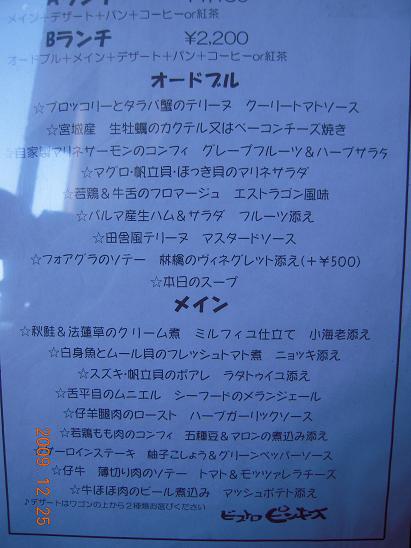 Aランチ
メイン+デザート+パン+コーヒーor紅茶
Bランチ ¥2,200
オードブル+メイン+デザート+パン+コーヒーor紅茶
オードブル
☆ブロッコリーとタラバ蟹のテリーヌ クーリートマトソース
☆宮城産 生牡蠣のカクテル又はベーコンチーズ焼き
☆自家製マリネサーモンのコンフィ グレープフルーツ&ハーブサラダ
☆マグロ・帆立貝・ほっき貝のマリネサラダ
☆若鶏&牛舌のフロマージュ エストラゴン風味
☆パルマ産生ハム&サラダ フルーツ添え
☆田舎風テリーヌ マスタードソース
☆フォアグラのソテー 林檎のヴィネグレット添え(+¥500)
☆本日のスープ
メイン
☆秋鮭&法蓮草のクリーム煮 ミルフィユ仕立て 小海老添え
☆白身魚とムール貝のフレッシュトマト煮 ニョッキ添え
☆スズキ・帆立貝のポアレ ラタトゥイユ添え
☆舌平目のムニエル シーフードのメランジェール
☆仔羊腿肉のロースト ハーブガーリックソース
☆若鶏もも肉のコンフィ 五種豆&マロンの煮込み添え
ーロインステーキ 柚子こしょう&グリーンペッパーソース
☆仔牛 薄切り肉のソテー トマト&モッツァレラチーズ
☆牛ほほ肉のビール煮込み マッシュポテト添え
♪デザートはワゴンの上から2種類お選びください
ビストロ ピンキーズ
2009.12.25